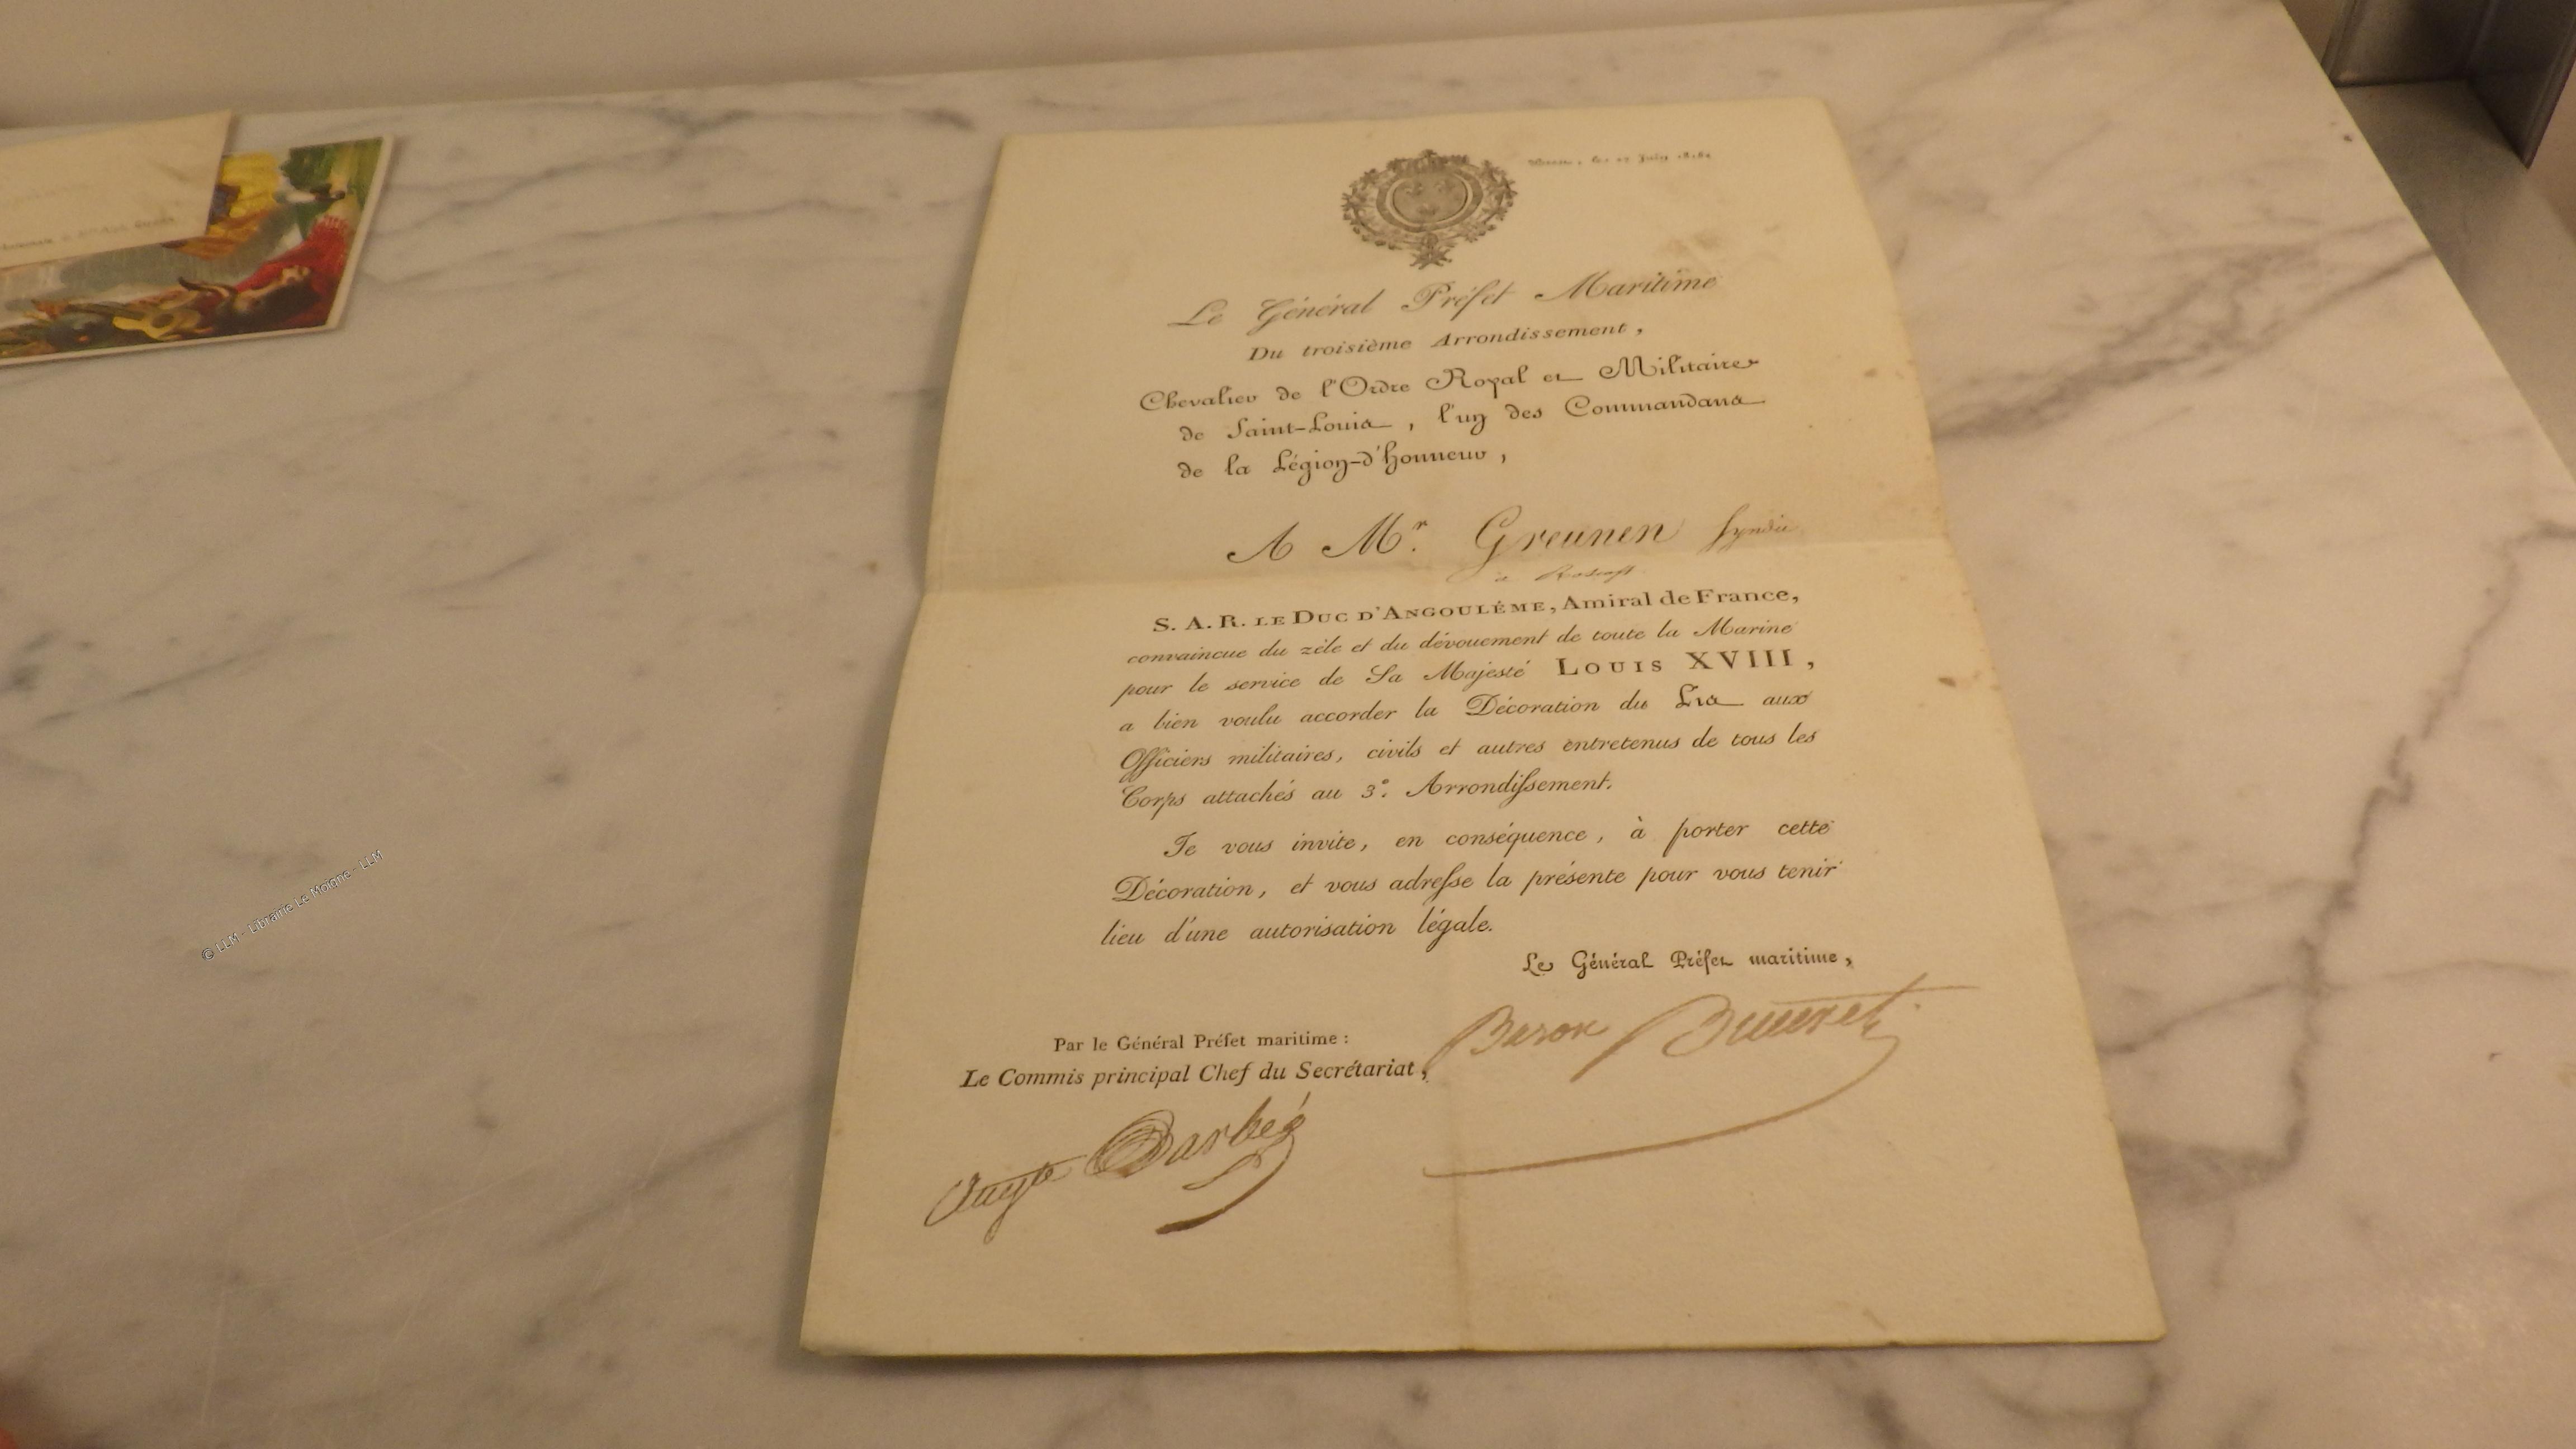 Juin
Le Général Préfet Maritime
Du troisième Arrondissement,
Chevalier de l'Ordre Royal et Militaire
de Saint-Louis, l'un des Commandans
de la Légion-d'honneur,
A Mr. Greunen Syndic
à Roscoff
S. A. R. LE DUC D'ANGOULÉME, Amiral de France,
convaincue du zèle et du dévouement de toute la Marine
pour le service de Sa Majesté LOUIS XVIII,
a bien voulu accorder la Décoration du Lis aux
Officiers militaires, civils et autres entretenus de tous les
Corps attachés au 3e. Arrondissement.
Je vous invite, en conséquence, à porter cette
Décoration, et vous adresse la présente pour vous tenir
lieu d'une autorisation légale.
Le Général Préfet maritime,
Baron
Par le Général Préfet maritime :
Le Commis principal Chef du Secrétariat,
Augte Barbé
© LLM - Librairie Le Moigne - LLM